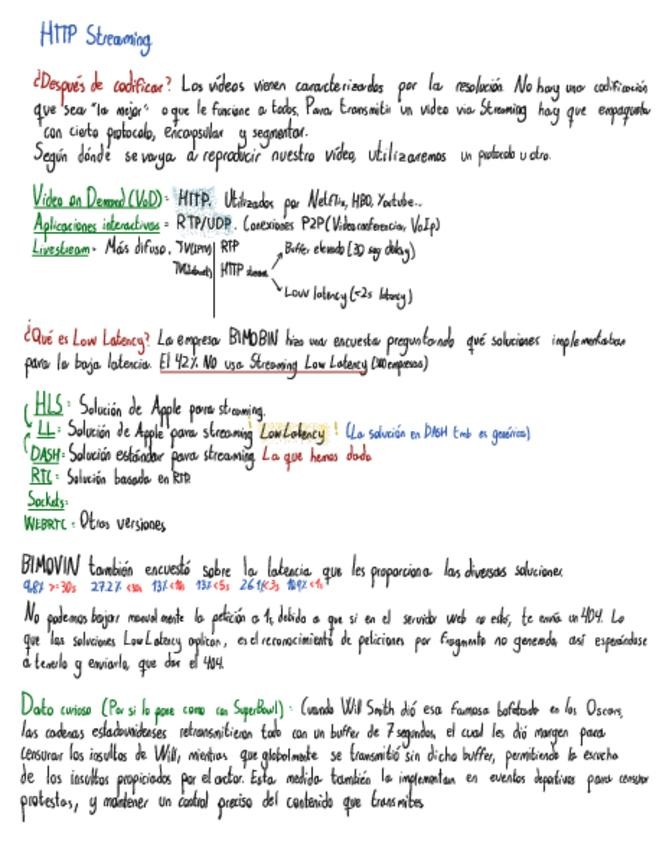 HTTP Streaming
¿Después de codificar? Los vídeos vienen caracterizados por la resolución. No hay una codificación
que sea "la mejor" o que le funcione a todos. Para transmitir un video via Streaming hay que empaquetar
con cierto protocolo, encapsular y segmentar.
Según dónde se vaya a reproducir nuestro vídeo, utilizaremos un protocolo u otro.
Video on Demand (VoD): HTTP. Utilizados por Netflix, HBO, Youtube..
Aplicaciones interactivas = RTP/UDP. Conexiones P2P (Videoconferencia, VoIp)
Livestream - Más difuso. TV(IPTV) | RTP
HTTP
Buffer elevado (30 seg delay)
Low latency (<2s latency)
¿Qué es Low Latency? La empresa BIMOBIN hizo una encuesta preguntando qué soluciones implementaban
para la baja latencia. El 42% NO usa Streaming Low Latency
HLS: Solución de Apple para streaming.
LL: Solución de Apple para streaming ! Low Latency ! (La solución en DASH tmb es genérica)
DASH: Solución estándar para streaming La que hemos dado
RTC: Solución basada en RTP.
Sockets:
WEBRTC: Otras versiones
BIMOVIN también encuestó sobre la latencia que les proporciona las diversas soluciones.
9.8% >=30s 27.2% <30s 13% <10s 13% <5s 26.1% <3s <1s
No podemos bajar manualmente la petición a 1s, debido a que si en el servidor web no está, te envía un 404. Lo
que las soluciones Low Latency aplican, es el reconocimiento de peticiones por fragmento no generado, así esperándose
a tenerlo y enviarlo, que dar el 404.
Dato curioso (Por si lo pone como con SuperBowl): Cuando Will Smith dió esa famosa bofetada en los Oscars,
las cadenas estadounidenses retransmitieron todo con un buffer de 7 segundos, el cual les dió margen para
censurar los insultos de Will, mientras que globalmente se transmitió sin dicho buffer, permitiendo la escucha
de los insultos propiciados por el actor. Esta medida también la implementan en eventos deportivos para censurar
protestas, y mantener un control preciso del contenido que transmites